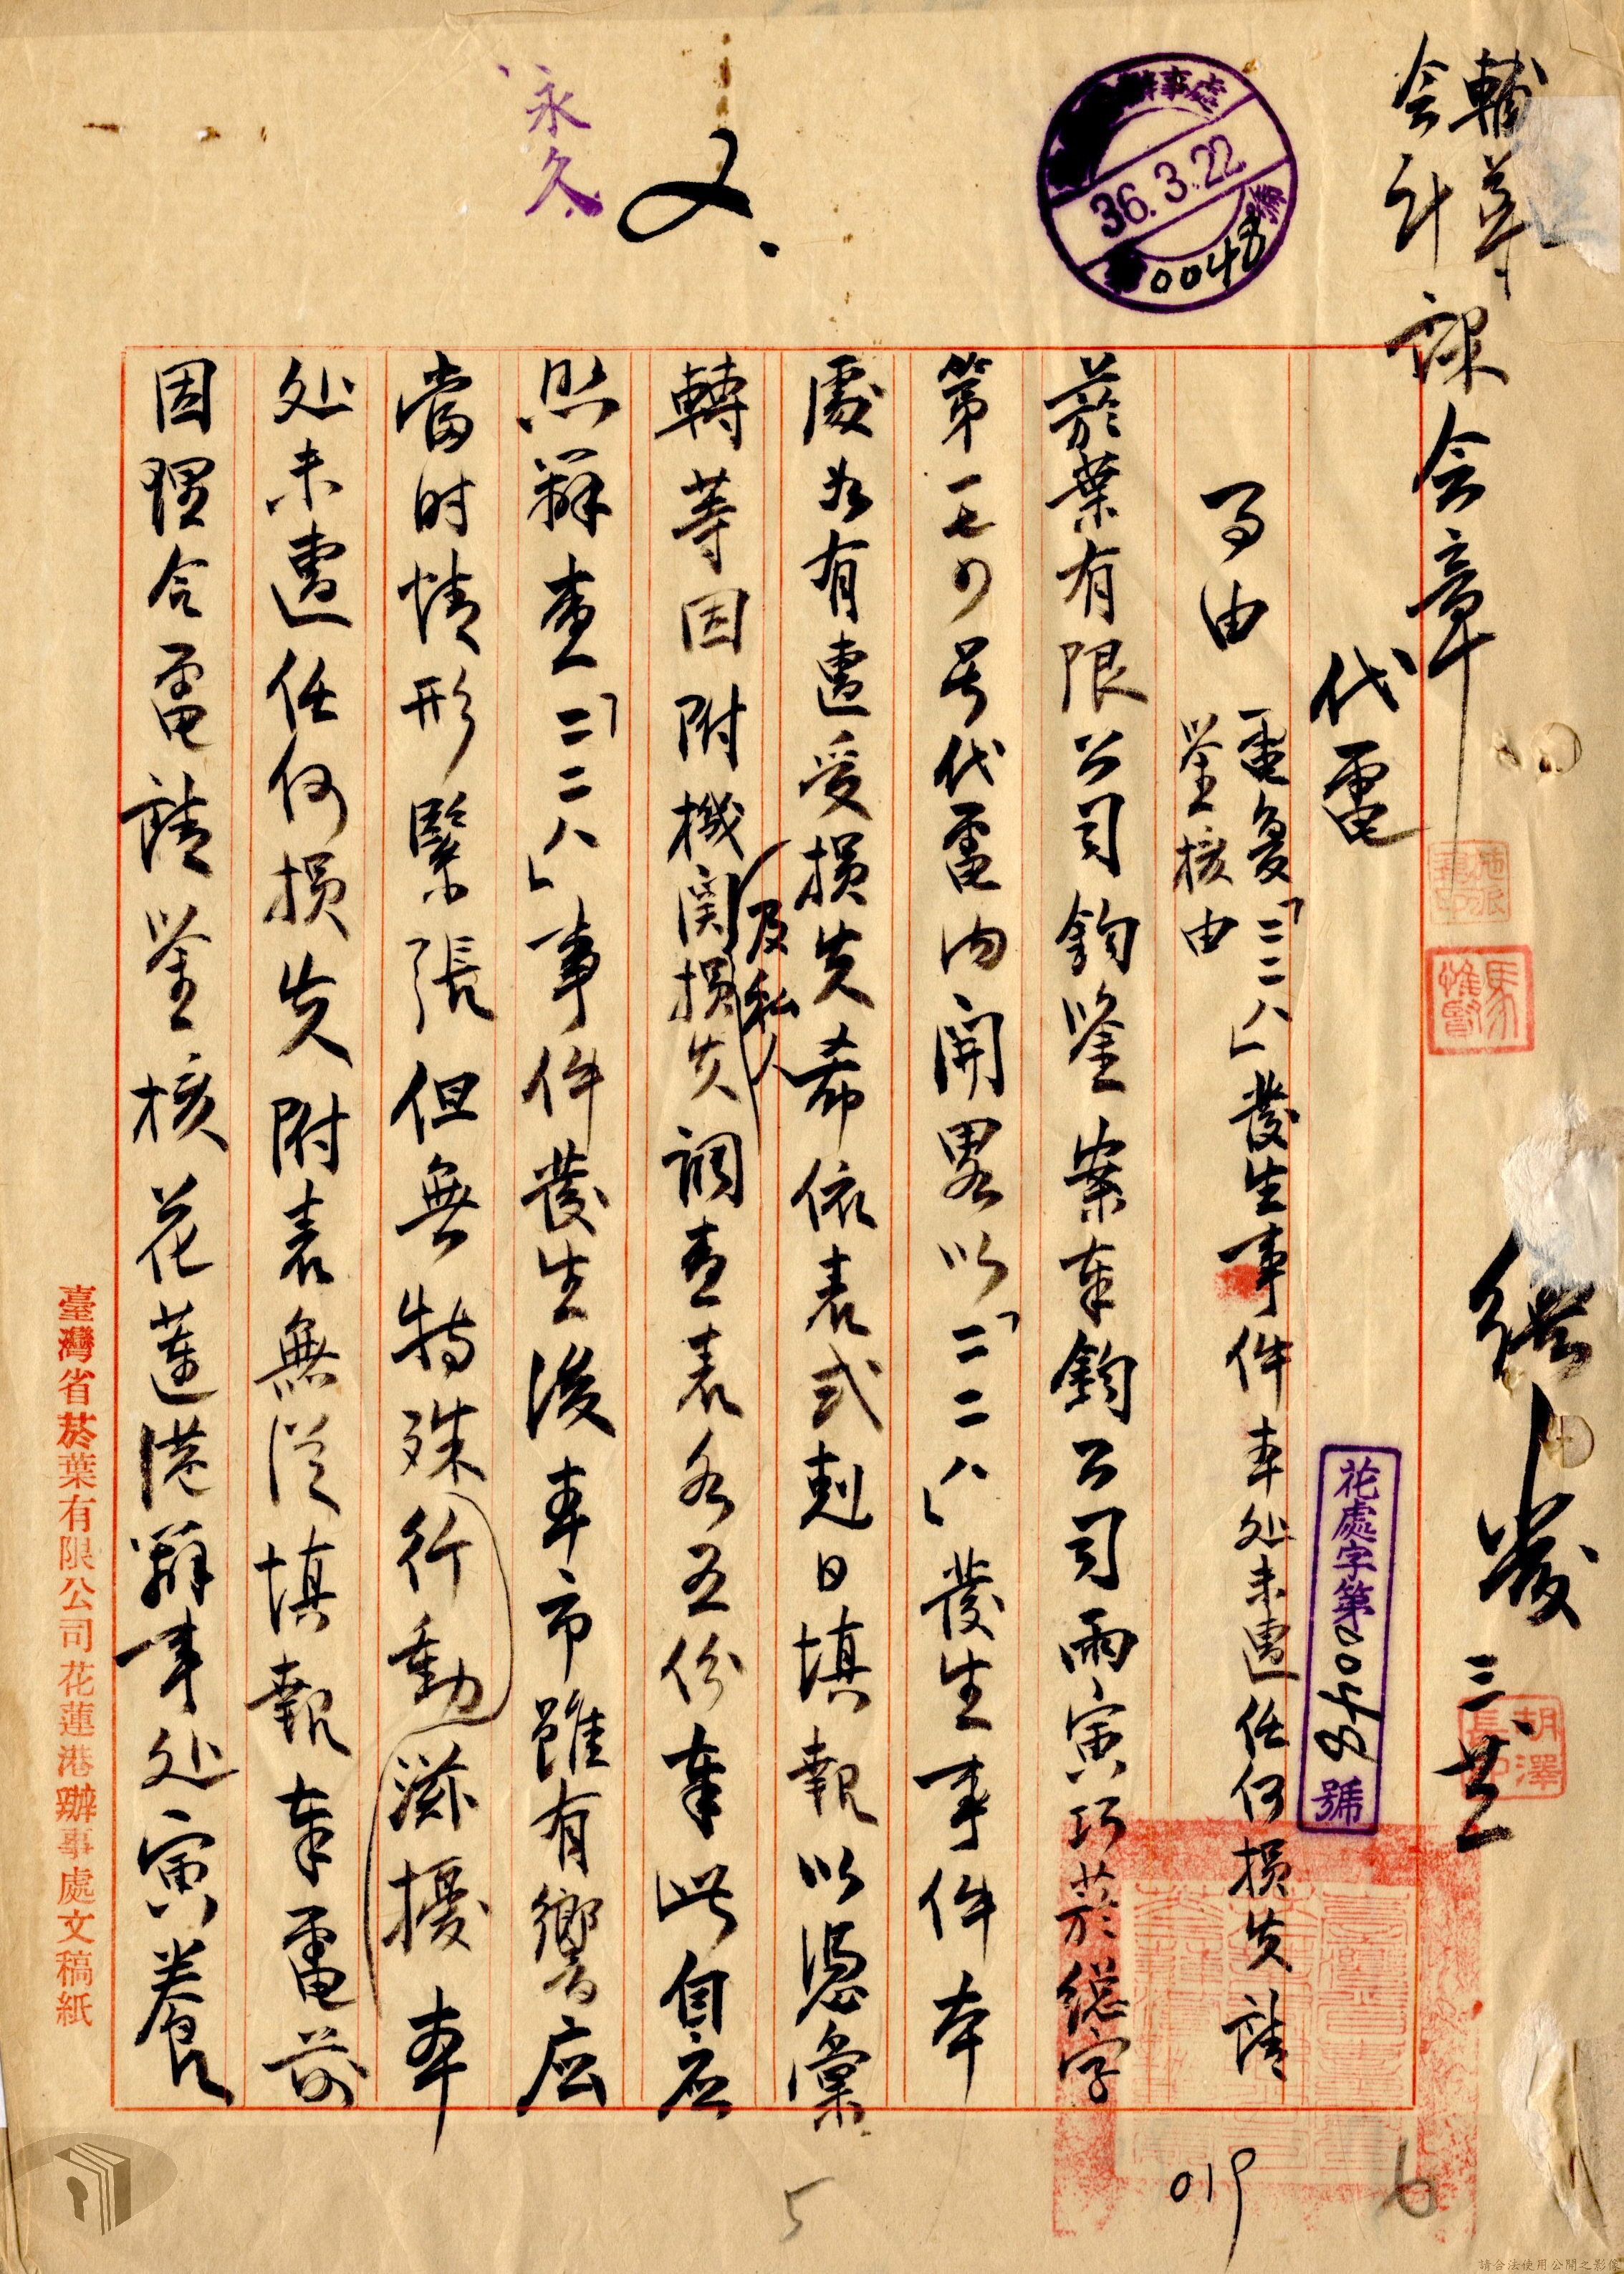 輔導
会計課会章
代電
事由
電復「二二八」發生事件本处未遭任何損失請
鉴核由
花處字第0048號
菸葉有限公司鈞鉴案奉鈞公司丙寅巧菸總字
第一七〇号代電內開畧以「二二八」發生事件本
處如有遭受損失希依表式剋日填報以憑彙
轉等因附機関及私人損失調查表各五份奉此自应
照辦查「二二八」事件發生後本市雖有響应
當时情形緊張但無特殊行動滋擾本
处未遭任何損失附表無從填報奉電前
因理合電請鉴核花蓮港辦事处寅養
臺灣省菸葉有限公司花蓮港辦事處文稿紙
辦事處
36.3.22
0048
永久
繕發
三、廿二
019
5
6
請合法使用公開之影像